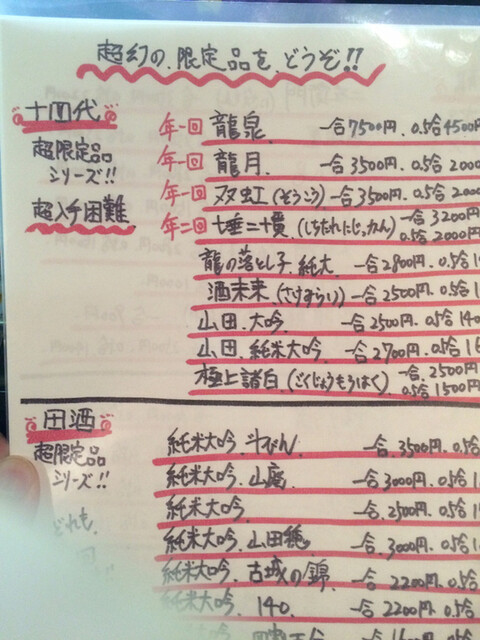 超幻の、限定品を、どうぞ!!
十四代
超限定品
シリーズ!!
超入手困難
年一回 龍泉 一合7500円、0.5合4500円
年一回 龍月 一合3500円、0.5合2000
年一回 双虹(そうこう) 一合3500円、0.5合2000
年二回 七垂二十貫(しちたれにじっかん) 一合3200円
0.5合2000円
龍の落とし子、純大 一合2800円、0.5合1
酒未来(さけみらい) 一合2500円、0.5合1
山田、大吟 一合2500円、0.5合140
山田、純米大吟 一合2700円、0.5合16
極上諸白(ごくじょうもろはく) 一合、2500円
0.5合1500円
田酒
超限定品
シリーズ!!
どれも、
純米大吟、斗びん 一合、3500円、0.5合
純米大吟、山廃 一合3000円、0.5合1
純米大吟 一合、2500円、0.5合1
純米大吟、山田穂 一合、3000円、0.5合1
純米大吟、古城の錦 一合2200円、0.5合
純米大吟、140、 一合2200円、0.5合